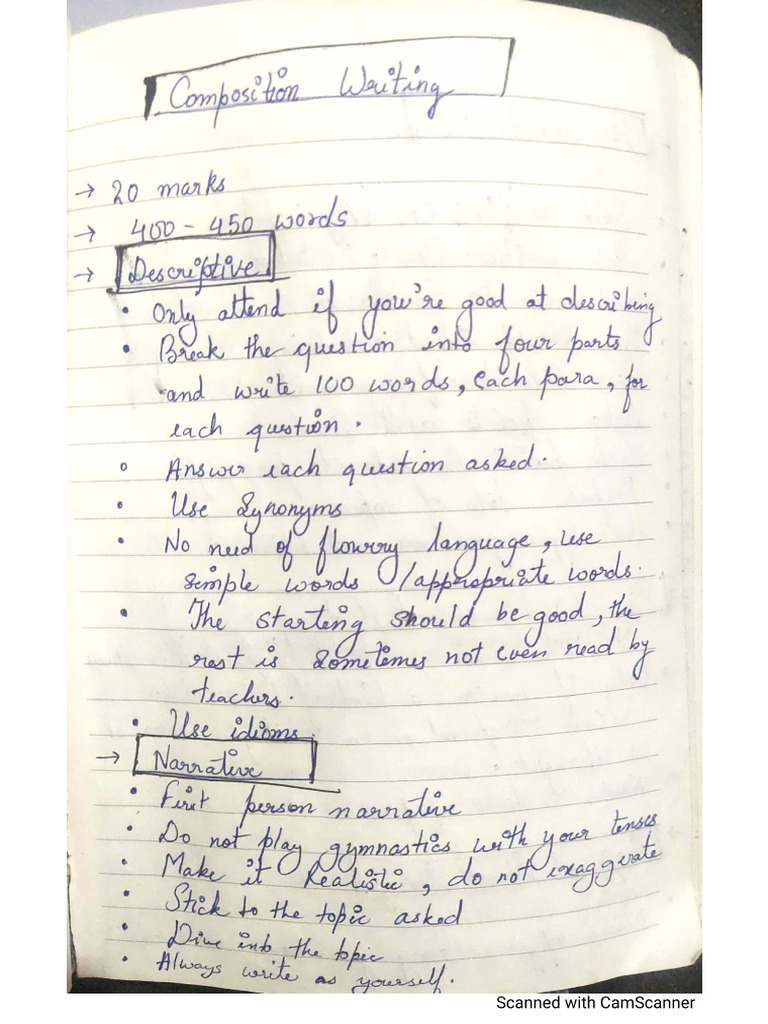 Composition Writing
→ 20 marks
→ 400 - 450 words
→ Descriptive
• Only attend if you're good at describing
• Break the question into four parts
and write 100 words, each para, for
each question.
• Answer each question asked.
• Use Synonyms
• No need of flowery language, use
simple words /appropriate words.
• The starting should be good, the
rest is sometimes not even read by
teachers.
• Use idioms.
→ Narrative
• First person narrative
• Do not play gymnastics with your tenses
• Make it Realistic, do not exaggerate
• Stick to the topic asked
• Dive into the topic
• Always write as yourself.
Scanned with CamScanner